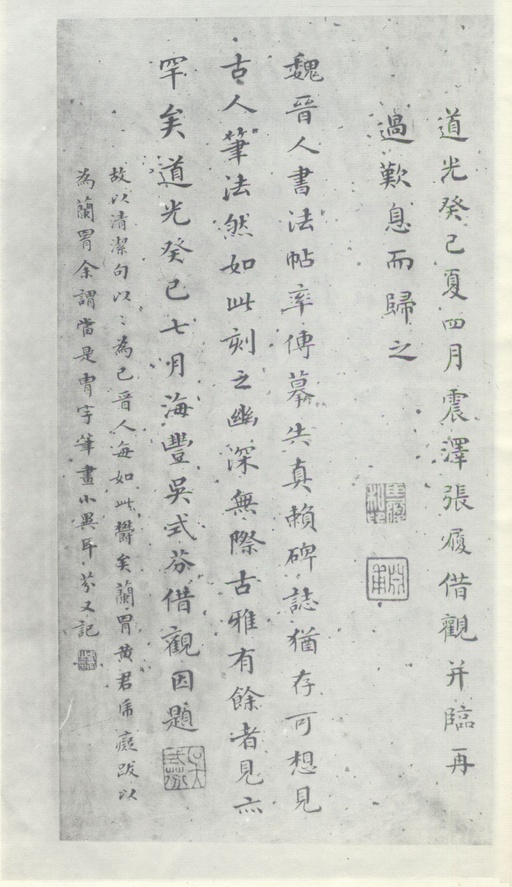 道光癸巳夏四月震澤張履借觀并臨再
過歎息而歸之
魏晉人書法帖率傳摹失真賴碑誌猶存可想見
古人筆法然如此刻之幽深無際古雅有餘者見亦
罕矣道光癸巳七月海豐吳式芬借觀因題
故以清潔句以〻為已晉人每如此鬱矣蘭胃黃君跋以
為蘭胃余謂當是胄字筆畫小異耳芬又記